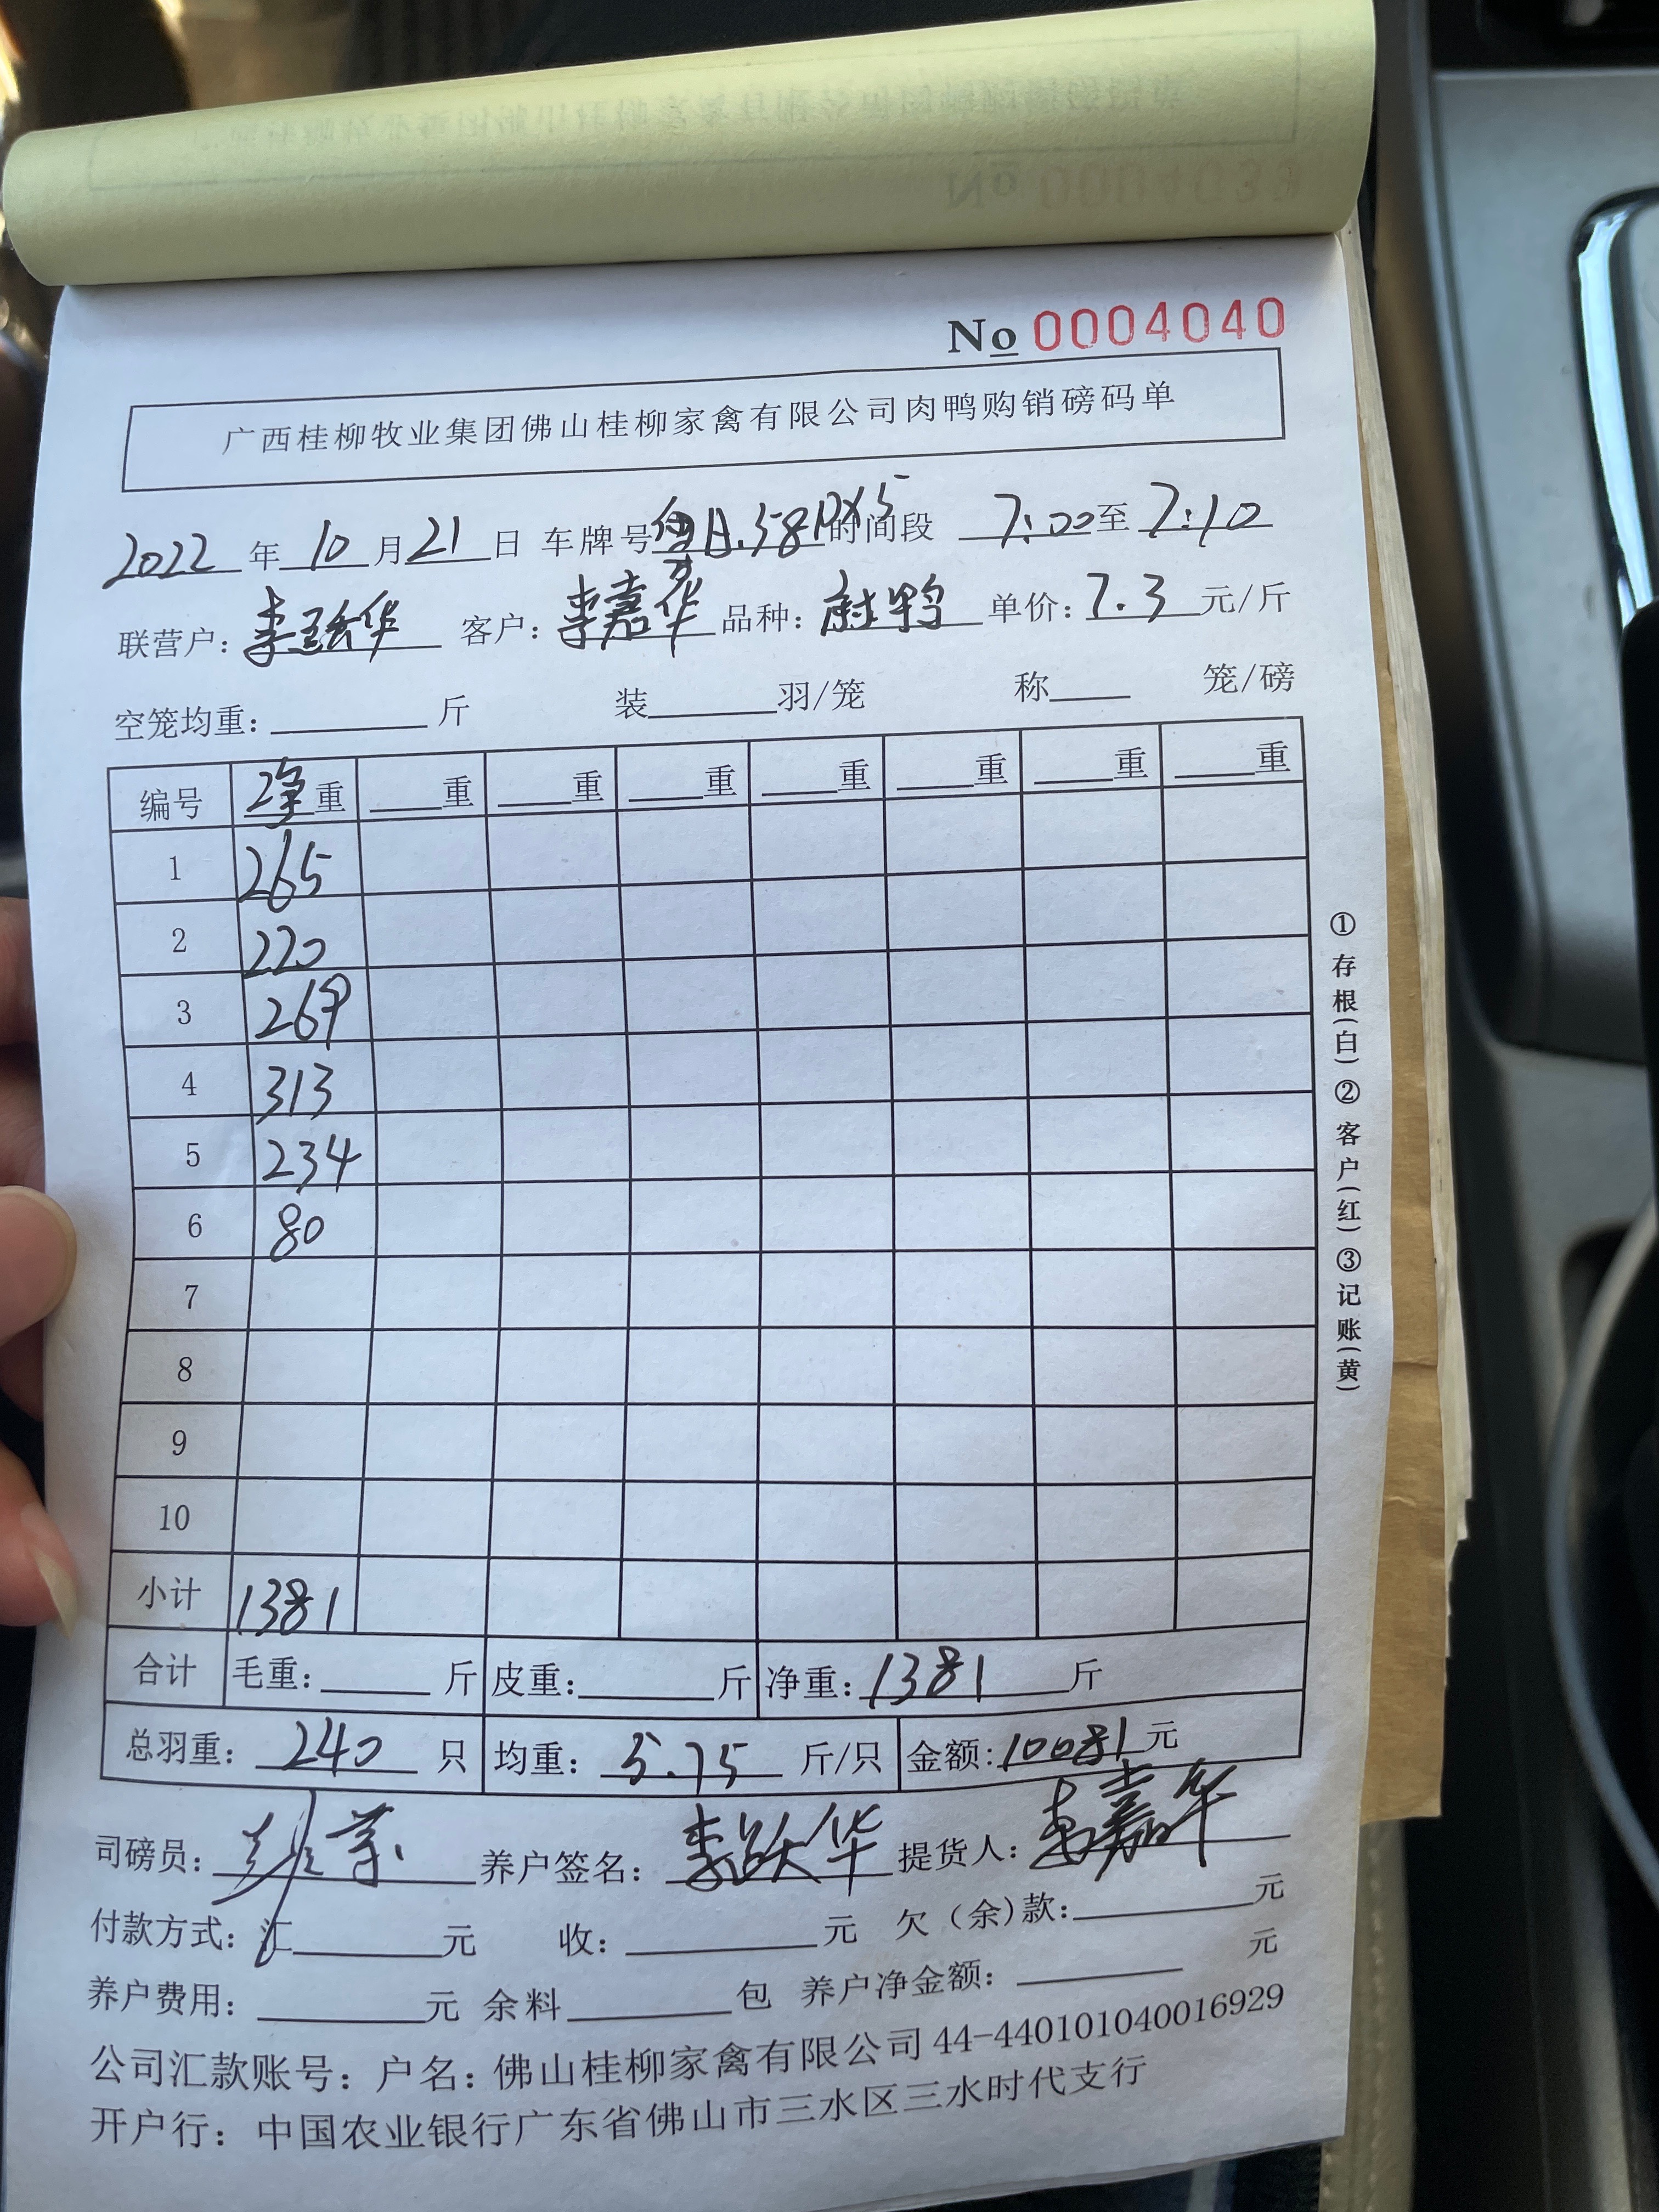 No 0004040
广西桂柳牧业集团佛山桂柳家禽有限公司肉鸭购销磅码单
2022年10月21日 车牌号 时间段 7:00至7:10
联营户:李跃华 客户:李嘉华 品种: 鸭 单价:7.3元/斤
空笼均重: 斤 装 羽/笼 称 笼/磅
编号 净重 重 重 重 重 重 重 重
1 265
2 220
3 269
4 313
5 234
6 80
7
8
9
10
小计 1381
合计 毛重: 斤 皮重: 斤 净重:1381斤
总羽重:240只 均重:5.75斤/只 金额:10081元
司磅员: 养户签名:李跃华 提货人:李嘉华
付款方式:汇 元 收: 元 欠(余)款: 元
养户费用: 元 余料 包 养户净金额: 元
公司汇款账号:户名:佛山桂柳家禽有限公司 44-440101040016929
开户行:中国农业银行广东省佛山市三水区三水时代支行
①存根(白)②客户(红)③记账(黄)